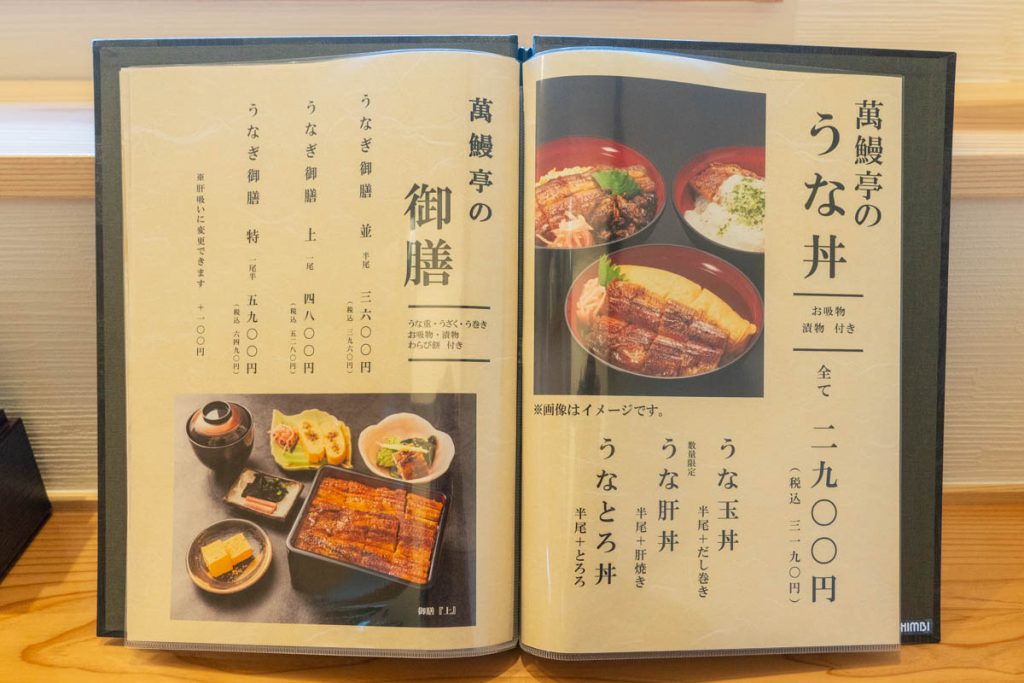 萬鰻亭の
うな丼
お吸物
漬物 付き
全て 二九〇〇円
(税込 三一九〇円)
※画像はイメージです。
うな玉丼
半尾＋だし巻き
数量限定
うな肝丼
半尾＋肝焼き
うなとろ丼
半尾＋とろろ
HIMBI
萬鰻亭の
御膳
うな重・うざく・う巻き
お吸物・漬物
わらび餅 付き
うなぎ御膳 並 半尾 三六〇〇円
(税込 三九六〇円)
うなぎ御膳 上 一尾 四八〇〇円
(税込 五二八〇円)
うなぎ御膳 特 一尾半 五九〇〇円
(税込 六四九〇円)
※肝吸いに変更できます ＋一〇〇円
御膳『上』